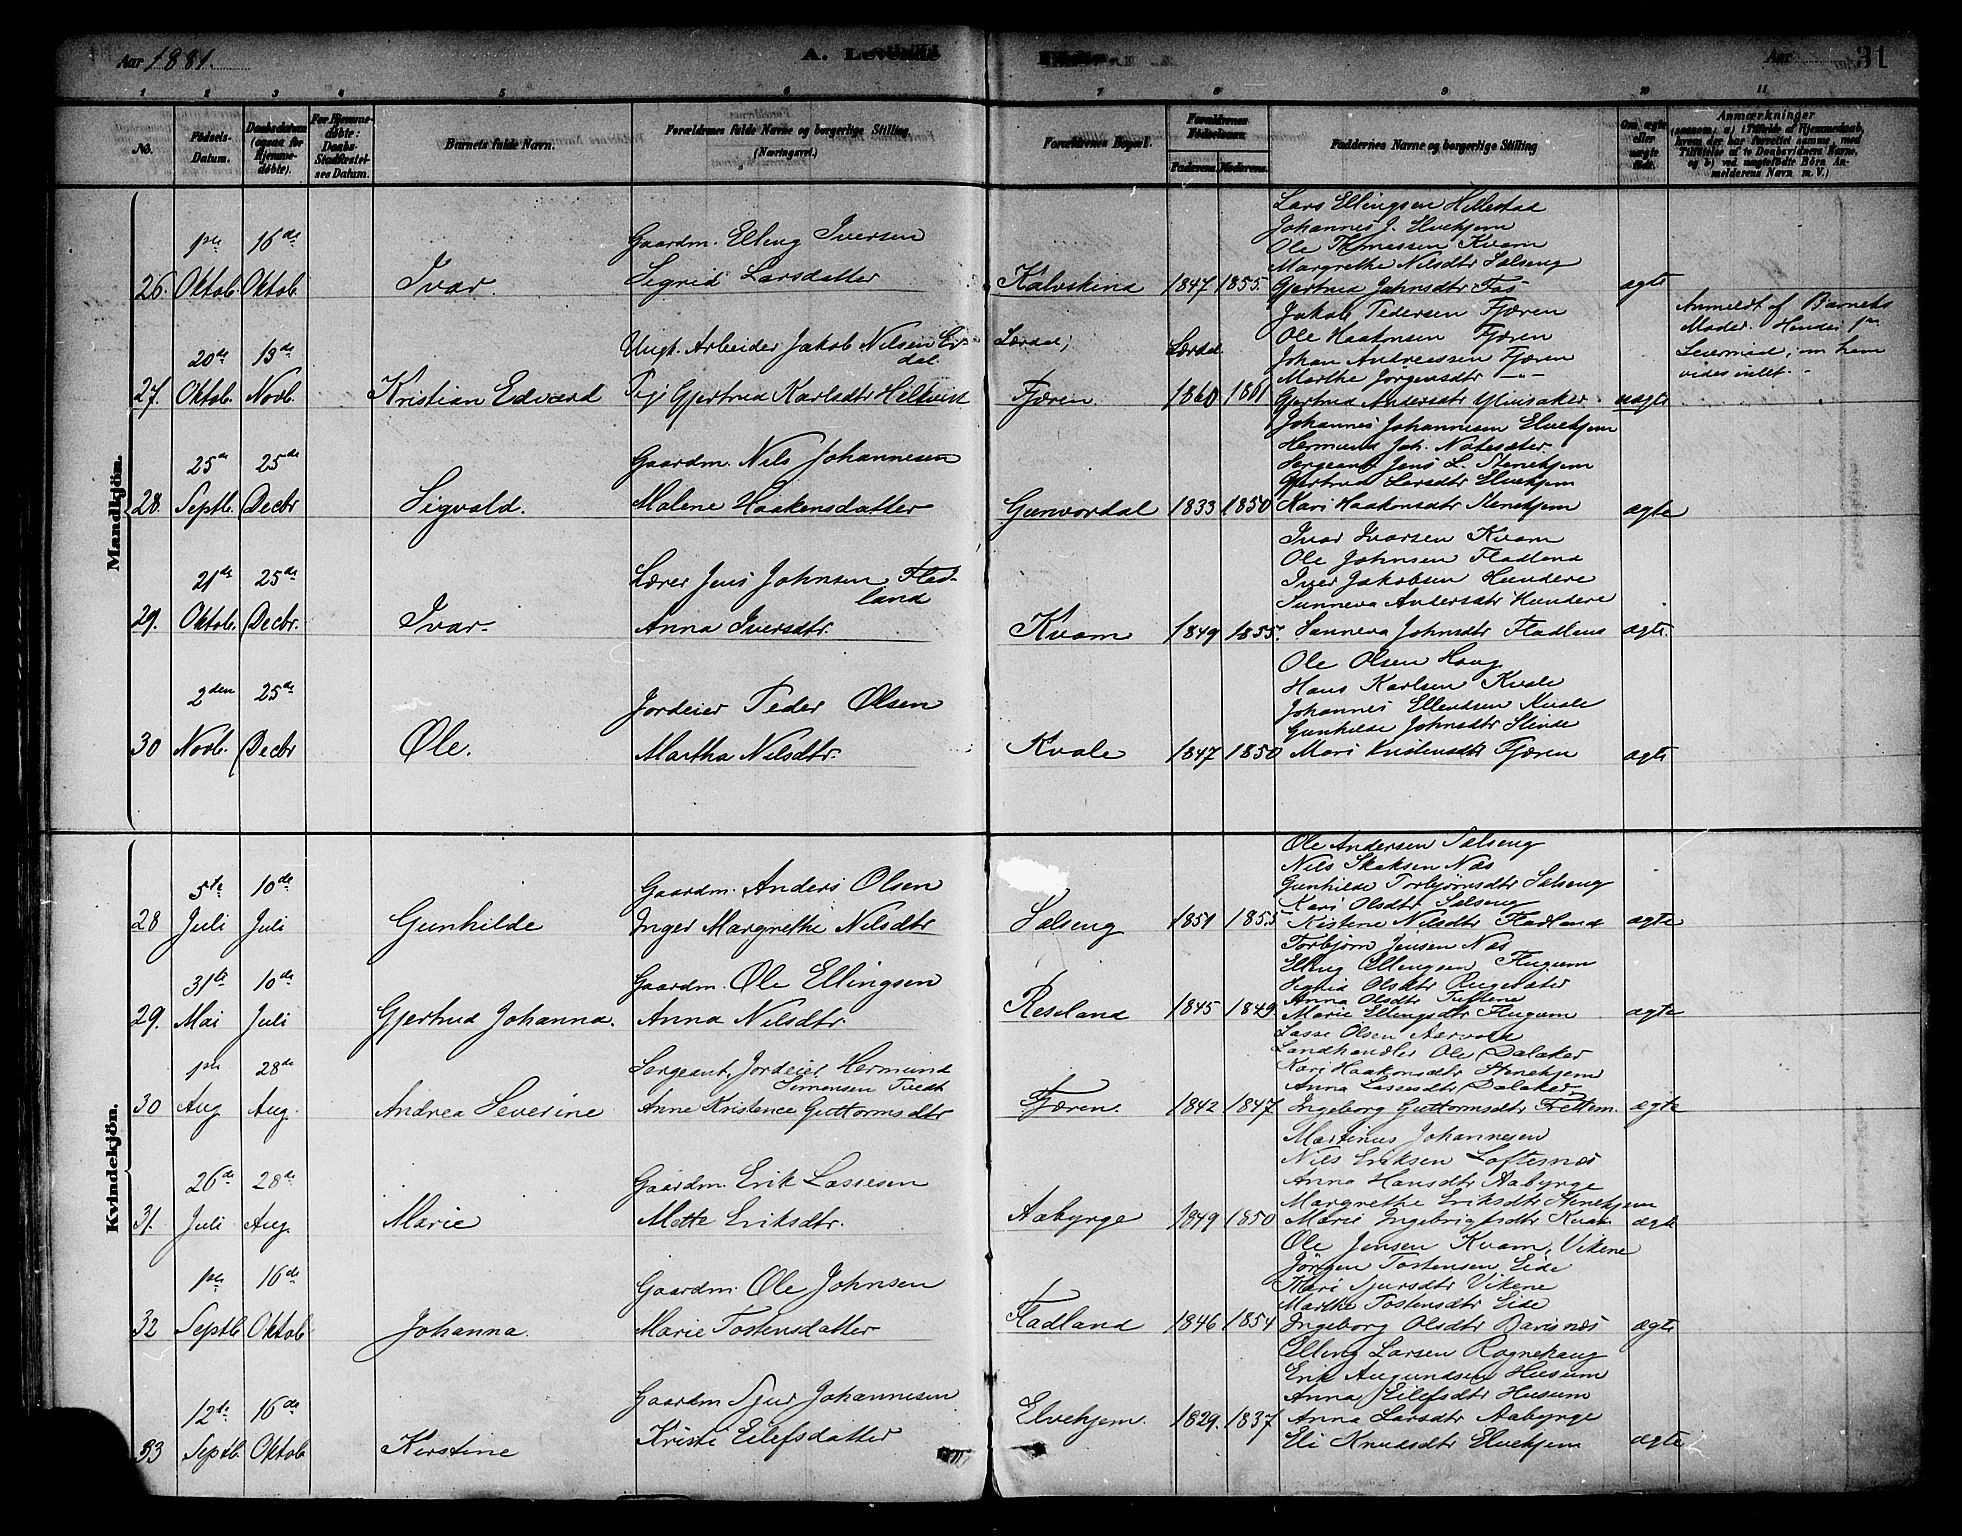 Aar 1881.
A. Levende
Fødte.
Aar
31
1 2 3 4 5 6 7 8 9 10 11
No.
Fødsels-Datum.
Daabsdatum (ogsaa for Hjemmedøbte).
For Hjemmedøbte: Daabs-Stadfæstelses Datum.
Barnets fulde Navn.
Forældrenes fulde Navne og borgerlige Stilling (Næringsvei.)
Forældrenes Bopæl.
Forældrenes Fødselsaar.
Faderens. Moderens.
Faddernes Navne og borgerlige Stilling
Om ægte eller uægte født.
Anmærkninger
(saasom: a) i Tilfælde af Hjemmedaab, hvem der har forrettet samme, med Tilføielse af to Daabsvidners Navne, og b) ved uægtefødte Børn Anmelderens Navn m. V.)
Mandkjön.
1ste 16de
26. Oktob. Oktob.
Ivar.
Gaardm. Elling Iversen
Sigrid Larsdatter
Kalvskind
1847 1855.
Lars Ellingsen Hillestad
Johannes J. Elvekjem
Ole Thomassen Kvam
Margrethe Nilsdtr Salseng
Gjertrud Jahnsdtr Fos
ægte
20de 13de
27. Oktob. Novb.
Kristian Edvard
Ungk. Arbeider Jakob Nilsen Eridal
Pige Gjertrud Karlsdtr
Lærdal;
Fjæren
Lærdal.
1860 1861
Jakob Pedersen Fjæren
Ole Haakonsen Fjæren
Johan Andreassen Fjæren
Marthe Jörgensdtr —"—
Gjertrud Andersdtr Ylvisaker.
uægte
Anmeldt af Barnets
Moder. Hendes 1ste
Leiermaal; om ham
vides intet.
25de 25de
28. Septb. Decbr
Sigvald.
Gaardm. Nils Johannesen
Malene Haakensdatter
Gunvordal
1833 1850
Johannes Johannesen Elvekjem
Hermund Joh. Notesæter.
Sergeant Jens L. Stenehjem
Gjertrud Larsdtr Elvekjem
Kari Haakonsdtr Stenehjem
ægte
21de 25de
29. Oktob. Decbr.
Ivar.
Lærer Jens Johnsen Fladland
Anna Iversdtr.
Kvam
1849 1855.
Ivar Ivarsen Kvam
Ole Johnsen Fladland
Iver Jakobsen Hundere
Sunneva Andersdtr Hundere
Sunneva Johnsdtr Fladland
ægte.
2den 25de
30 Novb. Decbr
Ole.
Jordeier Peder Olsen
Martha Nilsdtr.
Kvale
1847 1850
Ole Olsen Haug
Hans Karlsen Kvale
Johannes Ellendsen Kvale
Gunhilde Johnsdtr Stinde
Mari Kristensdtr Fjæren
ægte
Kvindekjön.
5te 10de
28 Juli Juli
Gunhilde
Gaardm. Anders Olsen
Inger Margrethe Nilsdtr
Salseng
1851 1855
Ole Andersen Salseng
Nils Skaksen Næs
Gunhilde Torbjørnsdtr Salseng
Kari Olsdtr Salseng
Kistine Nilsdtr Fladland
ægte
31te 10de
29. Mai Juli
Gjertrud Johanna.
Gaardm. Ole Ellingsen
Anna Nilsdtr.
Reseland
1845 1849
Torbjørn Jensen Næs
Elling Ellingsen Flugum
Sigrid Olsdtr
Anna Olsdtr Tuftene
Marie Ellingsdtr Flugum
ægte
1ste 28de
30 Aug Aug.
Andrea Severine
Sergeant, Jordeier Hermund
Simonsen Tvedt
Anne Kristence Guttormsdtr
Fjæren.
1842 1847
Lasse Olsen Aarvold
Landhandler Ole Dalaker
Kari Haakonsdtr Stenehjem
Anna Lassesdtr Dalaker
Ingeborg Guttormsdtr Frettem.
ægte
26de 28de
31. Juli Aug.
Marie
Gaardm. Erik Lassesen
Mette Eriksdtr.
Aabyrge
1849 1850
Martinus Johannesen
Nils Eriksen Loftesnæs
Anna Hansdtr Aabyrge
Margrethe Eriksdtr Stenehjem
Marie Ingebrigtsdtr Kvam
ægte
1ste 16de
32 Septb Oktob
Johanna.
Gaardm. Ole Johnsen
Marie Tostensdatter
Fladland
1846 1854
Ole Jensen Kvam, Vikene
Jörgen Tostensen Eide
Kari Sjursdtr Vikene
Marthe Tostensdtr Eide
Ingeborg Olsdtr Barsnæs
ægte
12te 16de
33 Septb. Oktob
Kirstine
Gaardm Sjur Johannesen
Kristi Eilefsdatter
Elvekjem.
1829. 1837
Elling Larsen Rognehaug
Erik Augundsen Husum
Anna Eilefsdtr Husum
Anna Larsdtr Aabyrge
Eli Knudsdtr Elvekjem
ægte